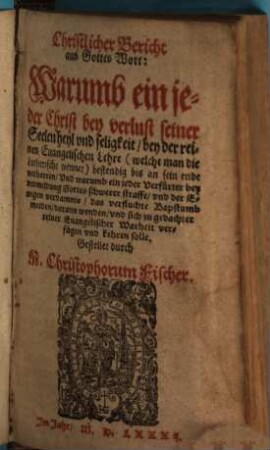 Christlicher Bericht
aus Gottes Wort:
Warumb ein je-
der Christ bey verlust seiner
Seelen heyl vnd seligkeit / bey der rei-
nen Euangelischen Lehre (welche man die
nennet) bestendig bis an sein ende
Vnd warumb ein jeder Verfürter bey
Gottes schwerer straffe / vnd der E-
wigen verdamnis / das verfluchte Bapstumb
meiden / dauon wenden / vnd sich zu gedachter
reiner Euangelischer Warheit ver-
fügen vnd kehren solle,
Gestellet durch
M. Christophorum Fischer.
Im Jahr / M. D.